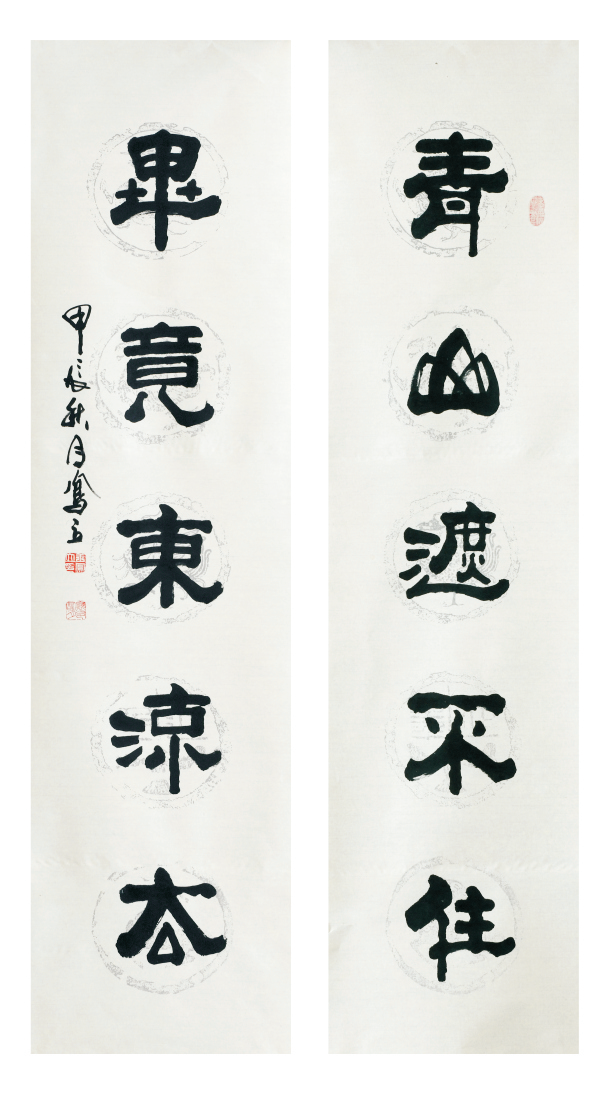 青山遮不住
畢竟東流去
甲辰秋月